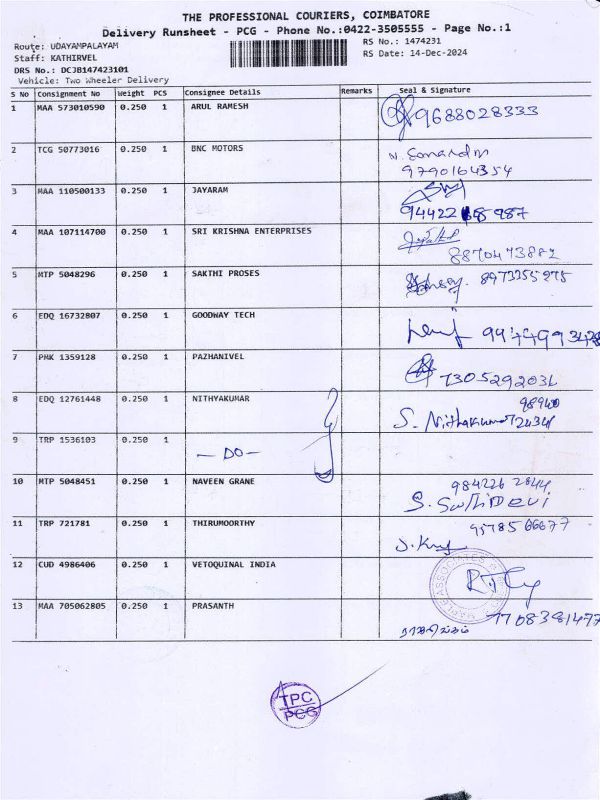 THE PROFESSIONAL COURIERS, COIMBATORE
Delivery Runsheet - PCG - Phone No.:0422-3505555 - Page No.:1
Route: UDAYAMPALAYAM
RS No.: 1474231
Staff: KATHIRVEL
RS Date: 14-Dec-2024
DRS No.: DCJB147423101
Vehicle: Two Wheeler Delivery
S No Consignment No Weight PCS Consignee Details Remarks Seal & Signature
1 MAA 573010590 0.250 1 ARUL RAMESH 9688028333
2 TCG 50773016 0.250 1 BNC MOTORS
9790164354
3 MAA 110500133 0.250 1 JAYARAM
94422 987
4 MAA 107114700 0.250 1 SRI KRISHNA ENTERPRISES
5 MTP 5048296 0.250 1 SAKTHI PROSES 8973355975
6 EDQ 16732807 0.250 1 GOODWAY TECH
7 PMK 1359128 0.250 1 PAZHANIVEL
8 EDQ 12761448 0.250 1 NITHYAKUMAR 98940
S. Nithakumar 72434
9 TRP 1536103 0.250 1 — DO —
10 MTP 5048451 0.250 1 NAVEEN GRANE 984226 2844
11 TRP 721781 0.250 1 THIRUMOORTHY 9578566677
12 CUD 4986406 0.250 1 VETOQUINAL INDIA
13 MAA 705062805 0.250 1 PRASANTH 7708391477
TPC
PCG